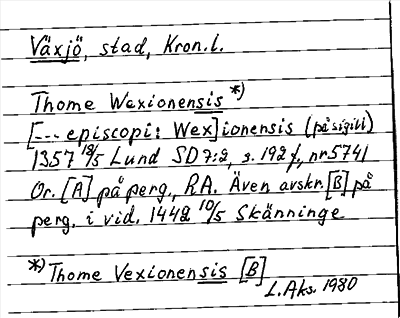 Växjö, stad, Kron.l.
Thome Wexionensis *)
[--- episcopi: Wex]ionensis (på sigill)
1357 18/5 Lund SD 7:2, s. 192 f, nr 5741
Or. [A] på perg., RA. Även avskr. [B] på
perg. i vid. 1442 10/5 Skänninge
*) Thome Vexionensis [B]
L. Aks. 1980